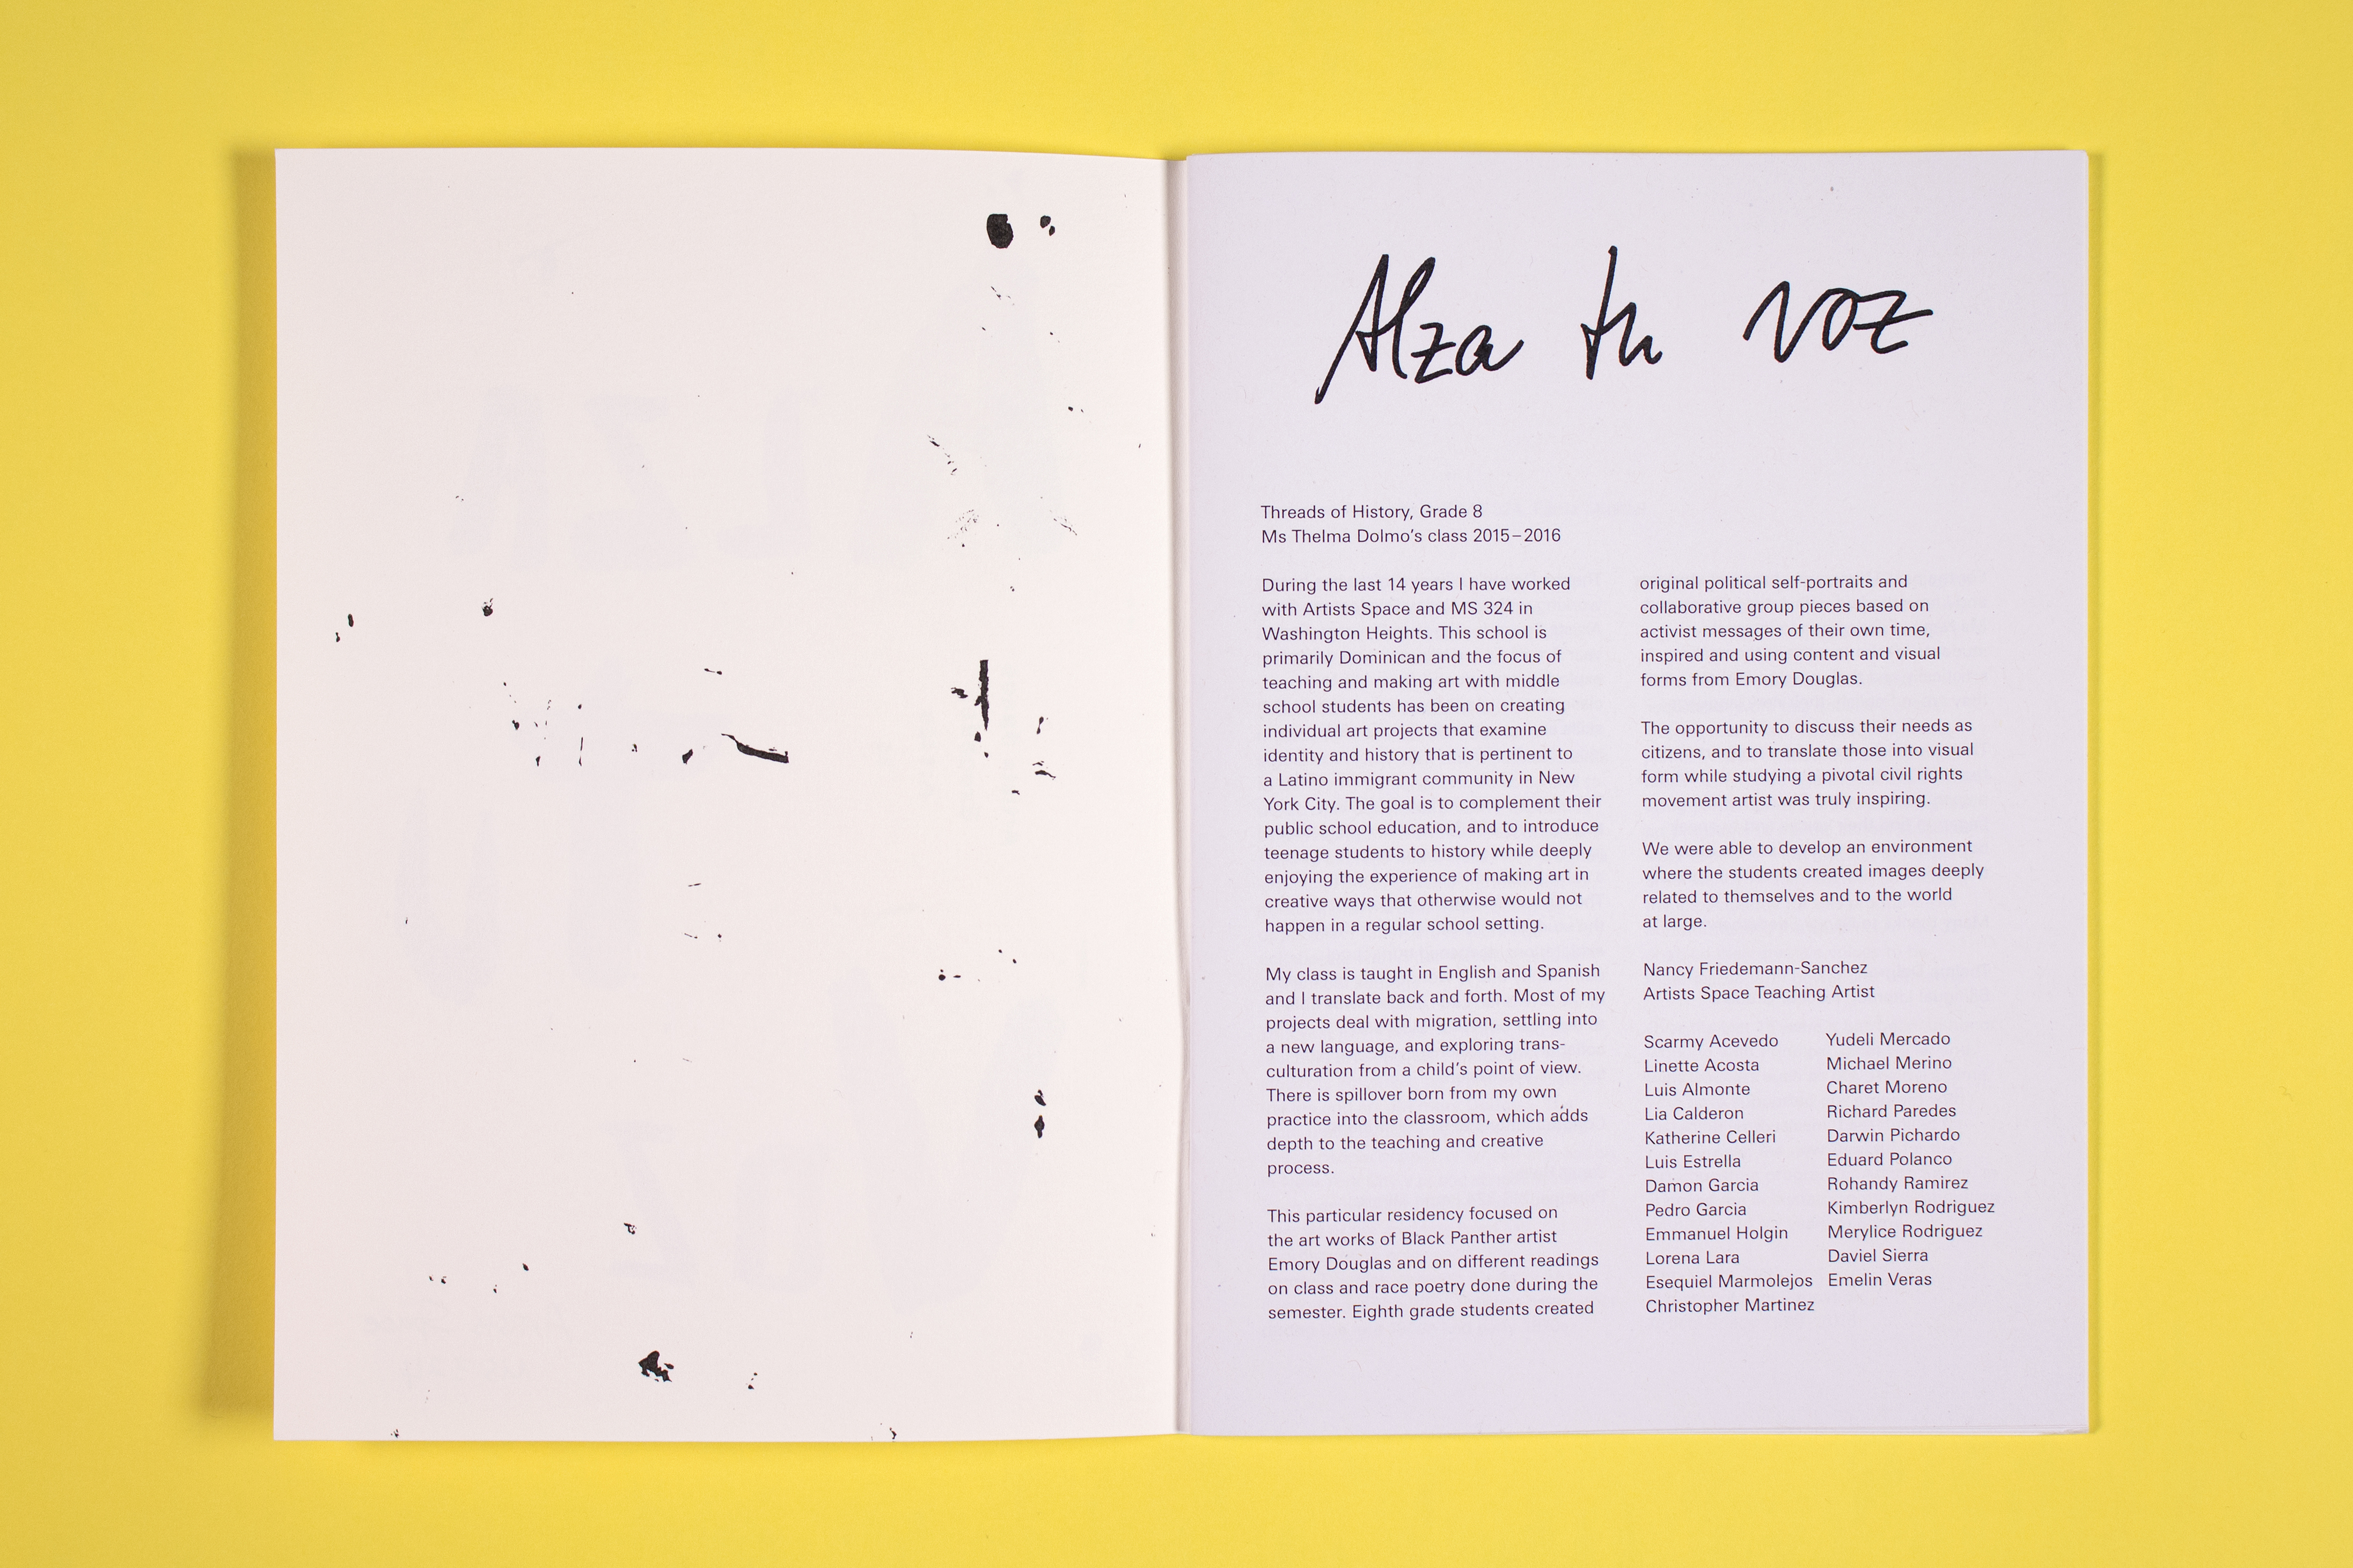 Alza tu voz
Threads of History, Grade 8
Ms Thelma Dolmo's class 2015–2016
During the last 14 years I have worked
with Artists Space and MS 324 in
Washington Heights. This school is
primarily Dominican and the focus of
teaching and making art with middle
school students has been on creating
individual art projects that examine
identity and history that is pertinent to
a Latino immigrant community in New
York City. The goal is to complement their
public school education, and to introduce
teenage students to history while deeply
enjoying the experience of making art in
creative ways that otherwise would not
happen in a regular school setting.
My class is taught in English and Spanish
and I translate back and forth. Most of my
projects deal with migration, settling into
a new language, and exploring trans-
culturation from a child's point of view.
There is spillover born from my own
practice into the classroom, which adds
depth to the teaching and creative
process.
This particular residency focused on
the art works of Black Panther artist
Emory Douglas and on different readings
on class and race poetry done during the
semester. Eighth grade students created
original political self-portraits and
collaborative group pieces based on
activist messages of their own time,
inspired and using content and visual
forms from Emory Douglas.
The opportunity to discuss their needs as
citizens, and to translate those into visual
form while studying a pivotal civil rights
movement artist was truly inspiring.
We were able to develop an environment
where the students created images deeply
related to themselves and to the world
at large.
Nancy Friedemann-Sanchez
Artists Space Teaching Artist
Scarmy Acevedo
Linette Acosta
Luis Almonte
Lia Calderon
Katherine Celleri
Luis Estrella
Damon Garcia
Pedro Garcia
Emmanuel Holgin
Lorena Lara
Esequiel Marmolejos
Christopher Martinez
Yudeli Mercado
Michael Merino
Charet Moreno
Richard Paredes
Darwin Pichardo
Eduard Polanco
Rohandy Ramirez
Kimberlyn Rodriguez
Merylice Rodriguez
Daviel Sierra
Emelin Veras